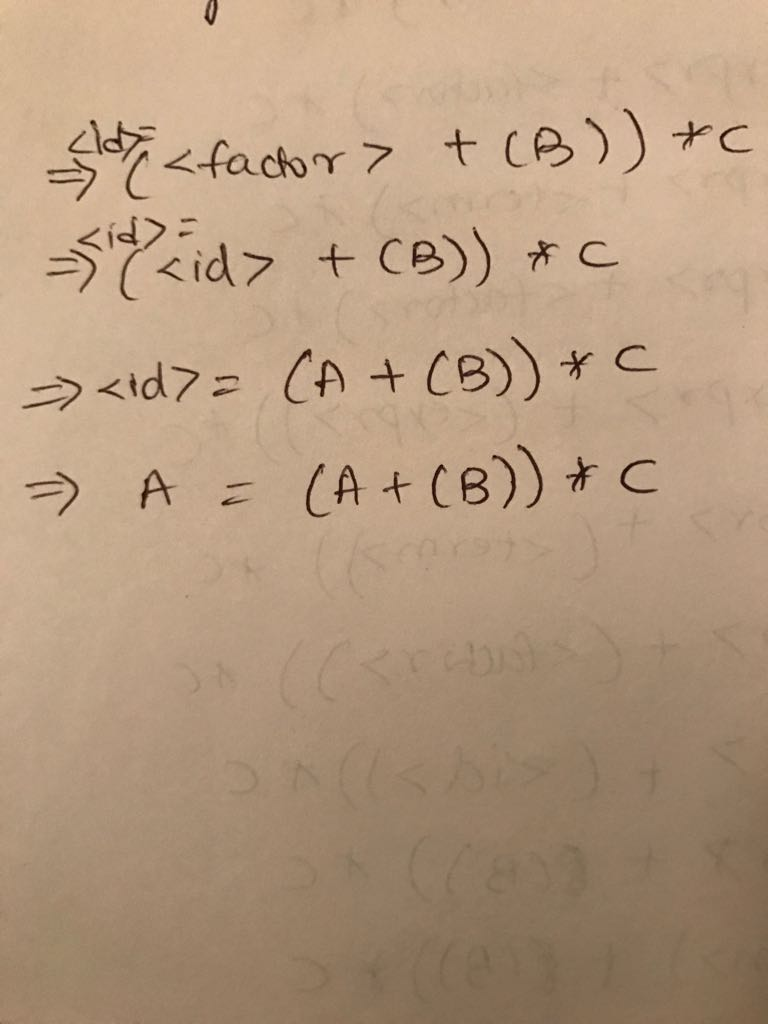 <id>=
⇒ (<factor> + (B)) * C
<id>=
⇒ (<id> + (B)) * C
⇒ <id> = (A + (B)) * C
⇒ A = (A + (B)) * C